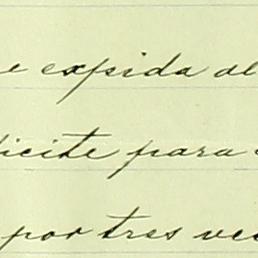 e expida al
licite para
por tres vec